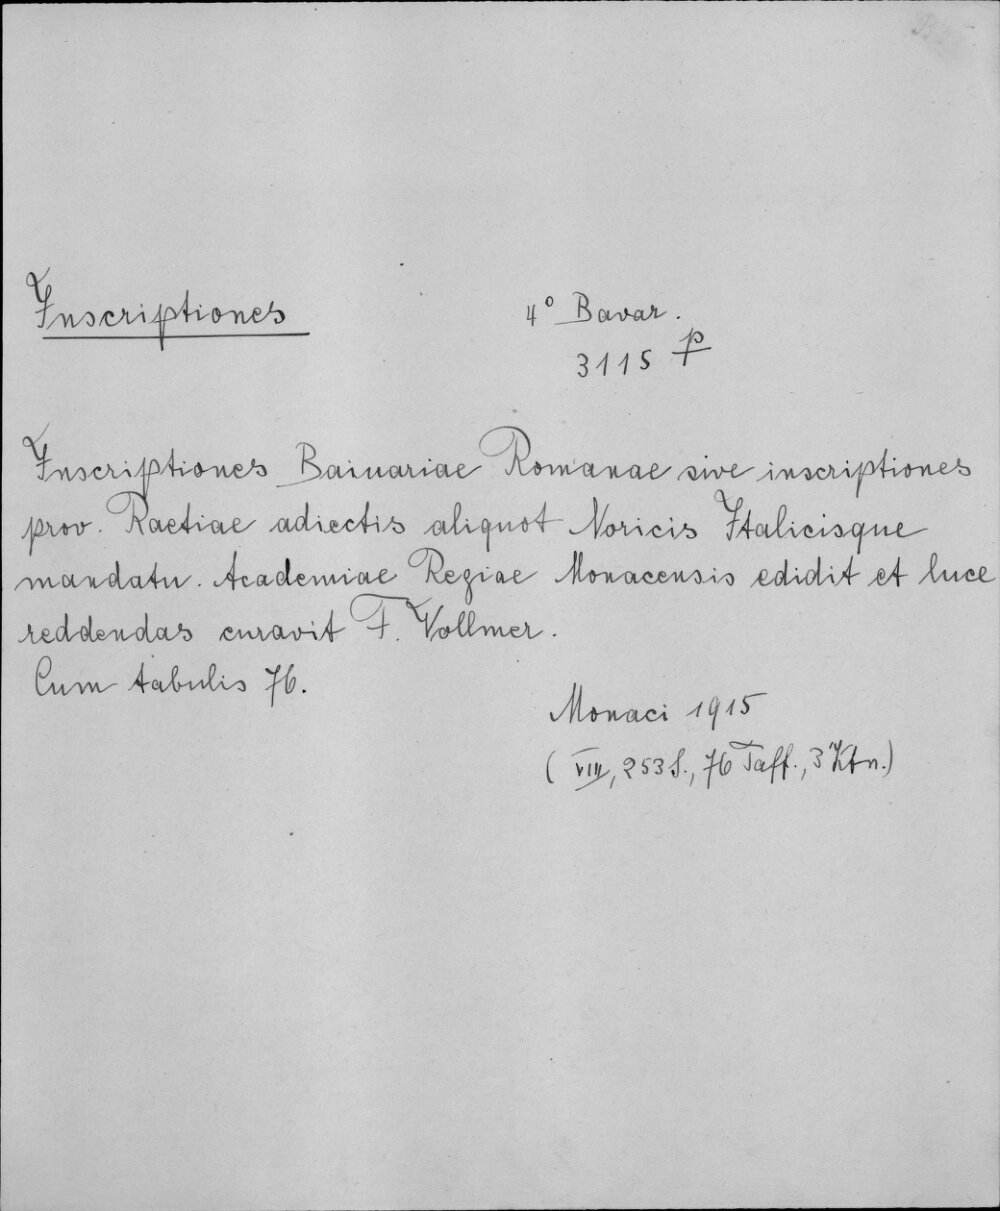 Inscriptiones
4° Bavar.
3115 p
Inscriptiones Baiuariae Romanae sive inscriptiones
prov. Raetiae adiectis aliquot Noricis Italicisque
mandatu. Academiae Regiae Monacensis edidit et luce
reddendas curavit F. Vollmer.
Cum tabulis 76.
Monaci 1915
(VIII, 253 S., 76 Taff., 3 Ktn.)